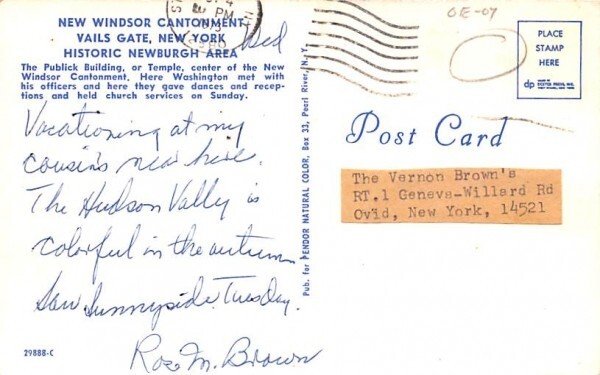 NEW WINDSOR CANTONMENT
VAILS GATE, NEW YORK
HISTORIC NEWBURGH AREA
The Publick Building, or Temple, center of the New
Windsor Cantonment. Here Washington met with
his officers and here they gave dances and recep-
tions and held church services on Sunday.
Vacationing at my
cousin's near here.
The Hudson Valley is
colorful in the autumn.
Saw Sunnyside Tuesday.
Rose M. Brown
29888-C
Pub. for PENDOR NATURAL COLOR, Box 33, Pearl River, N. Y.
PM
OE-07
PLACE
STAMP
HERE
dp
Post Card
The Vernon Brown's
RT.1 Geneva-Willard Rd
Ovid, New York, 14521